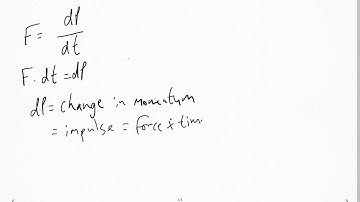 F = dP/dt
F. dt = dP
dP = change in momentum
= impulse = force × tim